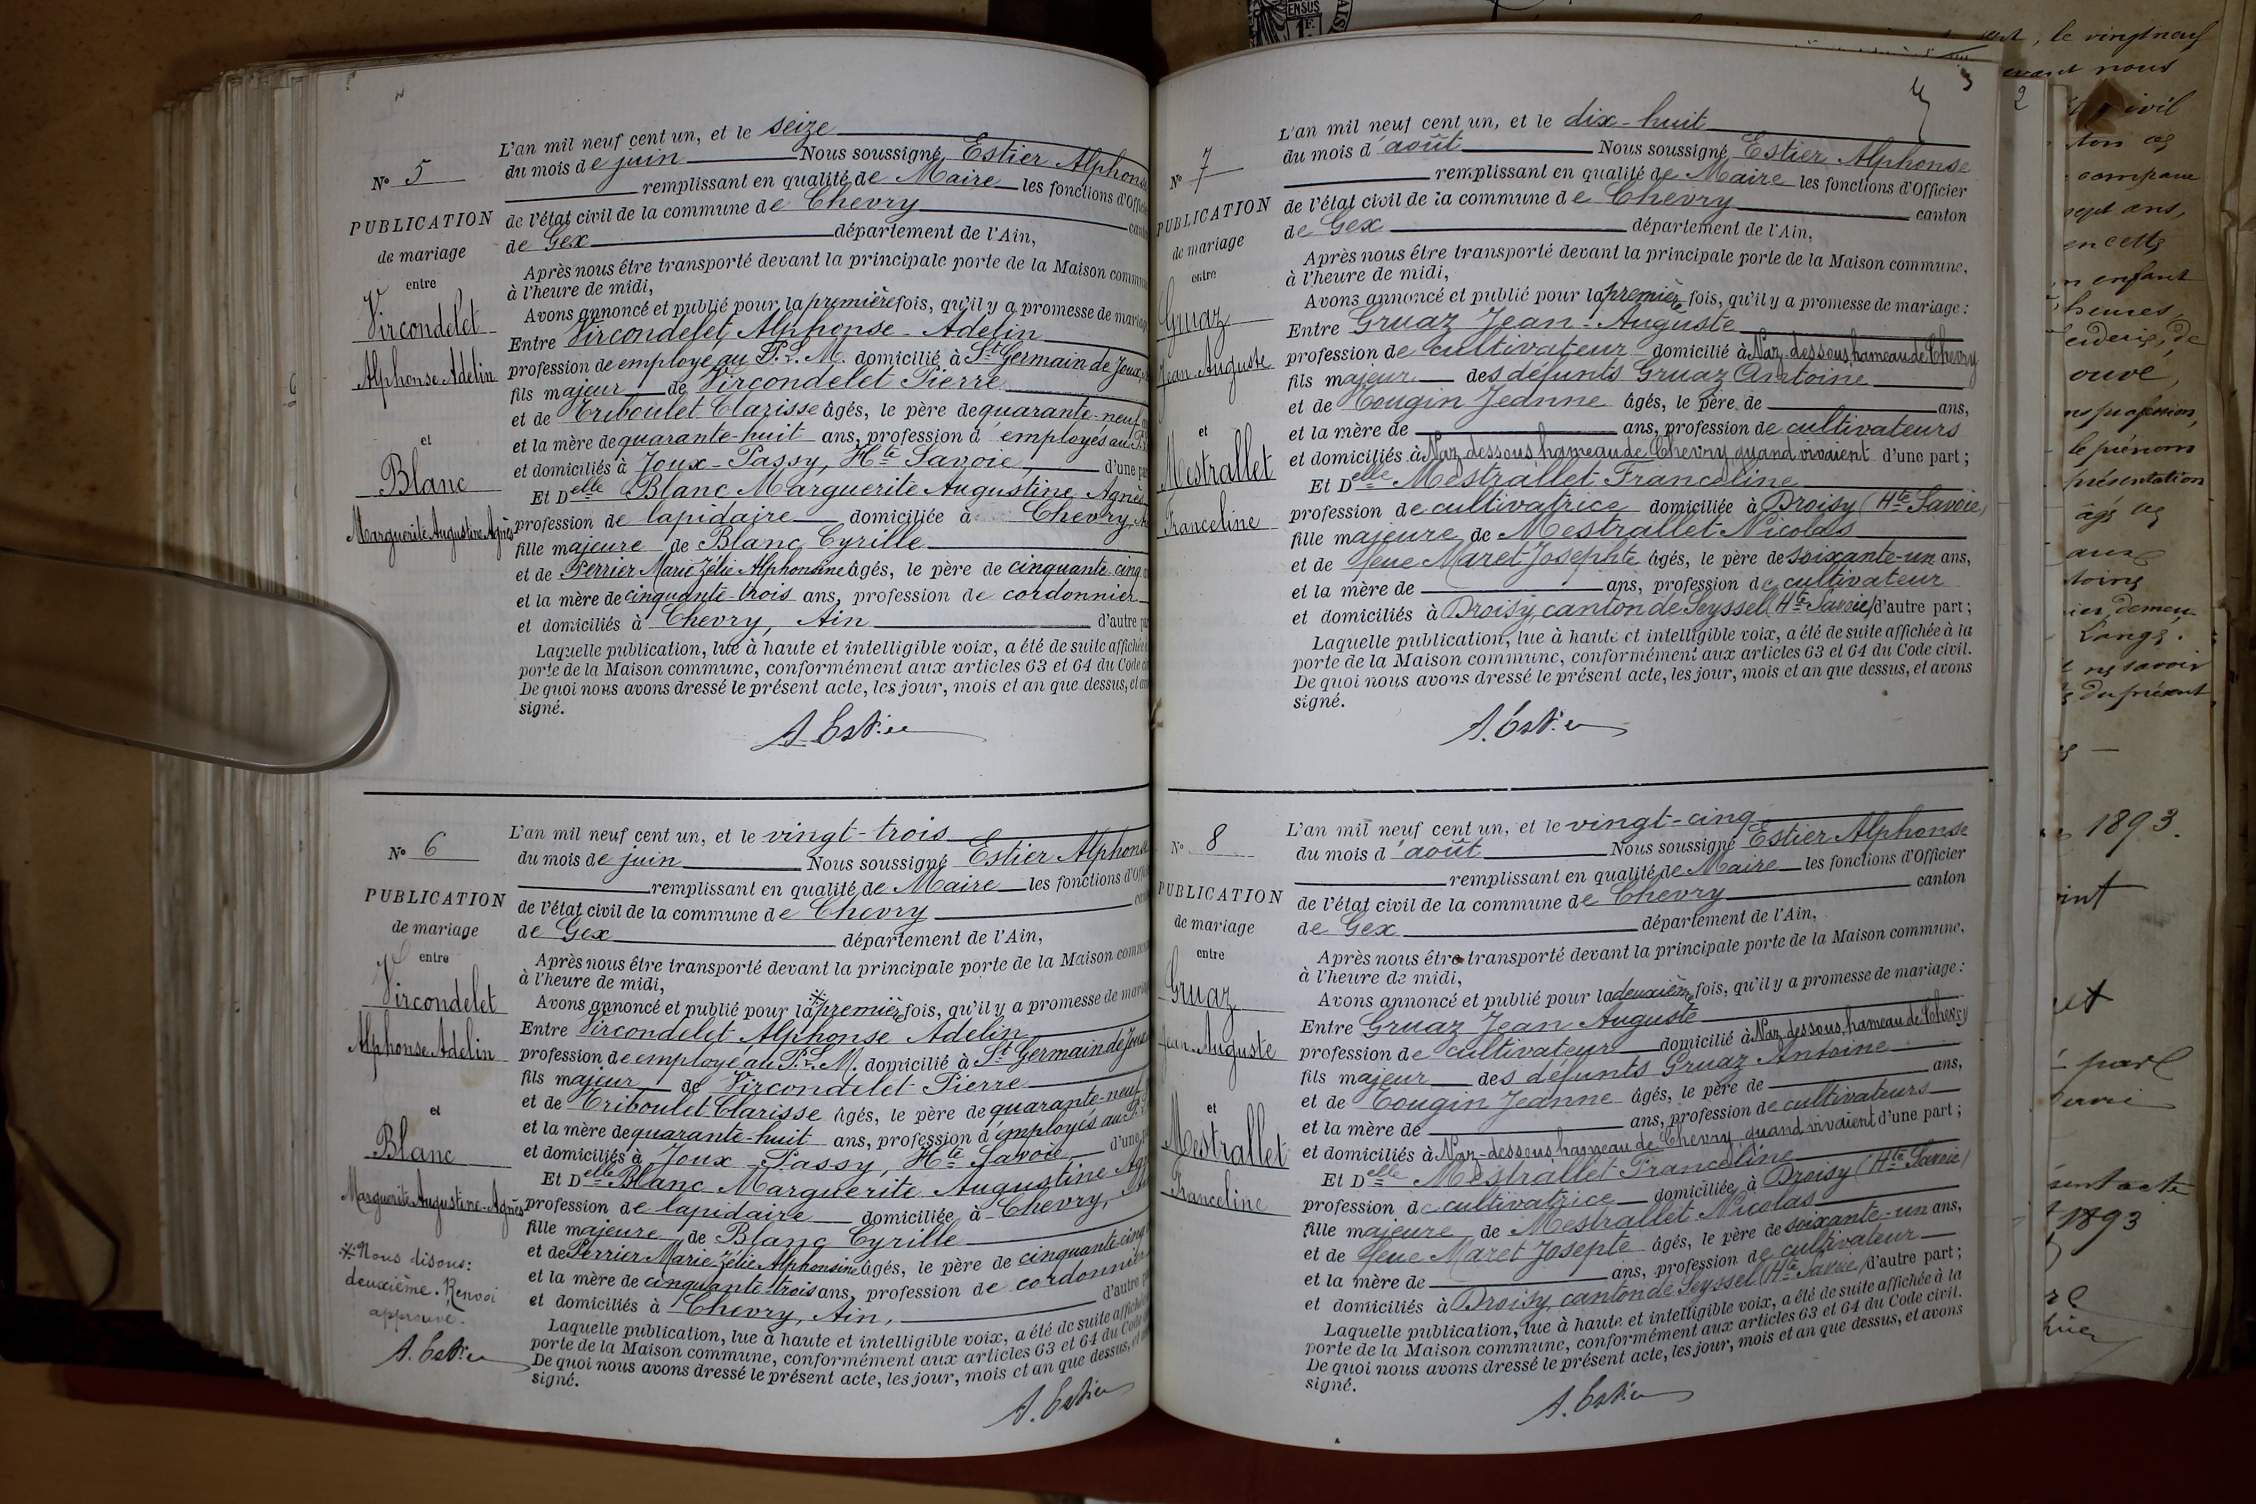 N° 5
PUBLICATION
de mariage
entre
Vircondelet
Alphonse Adelin
et
Blanc
Marguerite Augustine Agnès
L'an mil neuf cent un, et le seize
du mois de juin Nous soussigné, Estier Alphonse
remplissant en qualité de Maire les fonctions d'Officier
de l'état civil de la commune de Chevry canton
de Gex département de l'Ain,
Après nous être transporté devant la principale porte de la Maison commune
à l'heure de midi,
Avons annoncé et publié pour la première fois, qu'il y a promesse de mariage
Entre Vircondelet Alphonse-Adelin
profession de employé au P.L.M. domicilié à St Germain de Joux,
fils majeur de Vircondelet Pierre
et de Triboulet Clarisse âgés, le père de quarante-neuf
et la mère de quarante-huit ans, profession d'employés au P.
et domiciliés à Joux-Passy, Hte Savoie, d'une part
Et Delle Blanc Marguerite Augustine Agnès
profession de lapidaire domiciliée à Chevry,
fille majeure de Blanc Cyrille
et de Perrier Marie Zélie Alphonsine âgés, le père de cinquante-cinq
et la mère de cinquante-trois ans, profession de cordonnier
et domiciliés à Chevry, Ain d'autre part
Laquelle publication, lue à haute et intelligible voix, a été de suite affichée à
porte de la Maison commune, conformément aux articles 63 et 64 du Code
De quoi nous avons dressé le présent acte, les jour, mois et an que dessus, et
signé.
A. Estier
N° 6
PUBLICATION
de mariage
entre
Vircondelet
Alphonse Adelin
et
Blanc
Marguerite Augustine-Agnès
* Nous disons:
deuxième. Renvoi
approuvé.
A. Estier
L'an mil neuf cent un, et le vingt-trois
du mois de juin Nous soussigné Estier Alphonse
remplissant en qualité de Maire les fonctions d'Officier
de l'état civil de la commune de Chevry canton
de Gex département de l'Ain,
Après nous être transporté devant la principale porte de la Maison commune
à l'heure de midi,
Avons annoncé et publié pour la * première fois, qu'il y a promesse de mariage
Entre Vircondelet Alphonse Adelin
profession de employé au P.L.M. domicilié à St Germain de Joux
fils majeur de Vircondelet Pierre
et de Triboulet Clarisse âgés, le père de quarante-neuf
et la mère de quarante-huit ans, profession d'employés au P.
et domiciliés à Joux-Passy, Hte Savoie, d'une
Et Delle Blanc Marguerite Augustine Agnès
profession de lapidaire domiciliée à Chevry,
fille majeure de Blanc Cyrille
et de Perrier Marie Zélie Alphonsine âgés, le père de cinquante-cinq
et la mère de cinquante-trois ans, profession de cordonnier
et domiciliés à Chevry, Ain, d'autre
Laquelle publication, lue à haute et intelligible voix, a été de suite affichée
porte de la Maison commune, conformément aux articles 63 et 64 du Code
De quoi nous avons dressé le présent acte, les jour, mois et an que dessus,
signé.
A. Estier
3
N° 7
PUBLICATION
de mariage
entre
Gruaz
Jean-Auguste
et
Mestrallet
Franceline
L'an mil neuf cent un, et le dix-huit
du mois d'août Nous soussigné Estier Alphonse
remplissant en qualité de Maire les fonctions d'Officier
de l'état civil de la commune de Chevry canton
de Gex département de l'Ain,
Après nous être transporté devant la principale porte de la Maison commune,
à l'heure de midi,
Avons annoncé et publié pour la première fois, qu'il y a promesse de mariage :
Entre Gruaz Jean-Auguste
profession de cultivateur domicilié à Naz-dessous, hameau de Chevry
fils majeur des défunts Gruaz Antoine
et de Cougin Jeanne âgés, le père de ans,
et la mère de ans, profession de cultivateurs
et domiciliés à Naz-dessous hameau de Chevry quand vivaient d'une part ;
Et Delle Mestrallet Franceline
profession de cultivatrice domiciliée à Droisy (Hte Savoie)
fille majeure de Mestrallet Nicolas
et de feue Maret Josephte âgés, le père de soixante-un ans,
et la mère de ans, profession de cultivateur
et domiciliés à Droisy, canton de Seyssel (Hte Savoie) d'autre part ;
Laquelle publication, lue à haute et intelligible voix, a été de suite affichée à la
porte de la Maison commune, conformément aux articles 63 et 64 du Code civil.
De quoi nous avons dressé le présent acte, les jour, mois et an que dessus, et avons
signé.
A. Estier
N° 8
PUBLICATION
de mariage
entre
Gruaz
Jean-Auguste
et
Mestrallet
Franceline
L'an mil neuf cent un, et le vingt-cinq
du mois d'août Nous soussigné Estier Alphonse
remplissant en qualité de Maire les fonctions d'Officier
de l'état civil de la commune de Chevry canton
de Gex département de l'Ain,
Après nous être transporté devant la principale porte de la Maison commune,
à l'heure de midi,
Avons annoncé et publié pour la deuxième fois, qu'il y a promesse de mariage :
Entre Gruaz Jean Auguste
profession de cultivateur domicilié à Naz-dessous, hameau de Chevry
fils majeur des défunts Gruaz Antoine
et de Cougin Jeanne âgés, le père de ans,
et la mère de ans, profession de cultivateurs
et domiciliés à Naz-dessous hameau de Chevry quand vivaient d'une part ;
Et Delle Mestrallet Franceline
profession de cultivatrice domiciliée à Droisy (Hte Savoie)
fille majeure de Mestrallet Nicolas
et de feue Maret Josepte âgés, le père de soixante-un ans,
et la mère de ans, profession de cultivateur
et domiciliés à Droisy, canton de Seyssel (Hte Savoie) d'autre part ;
Laquelle publication, lue à haute et intelligible voix, a été de suite affichée à la
porte de la Maison commune, conformément aux articles 63 et 64 du Code civil.
De quoi nous avons dressé le présent acte, les jour, mois et an que dessus, et avons
signé.
A. Estier
2
le vingt neuf
nous
civil
compare
sept ans,
en cette
enfant
heures,
profession,
le prénom
présentation
demeu-
savoir
du présent
1893.
1893